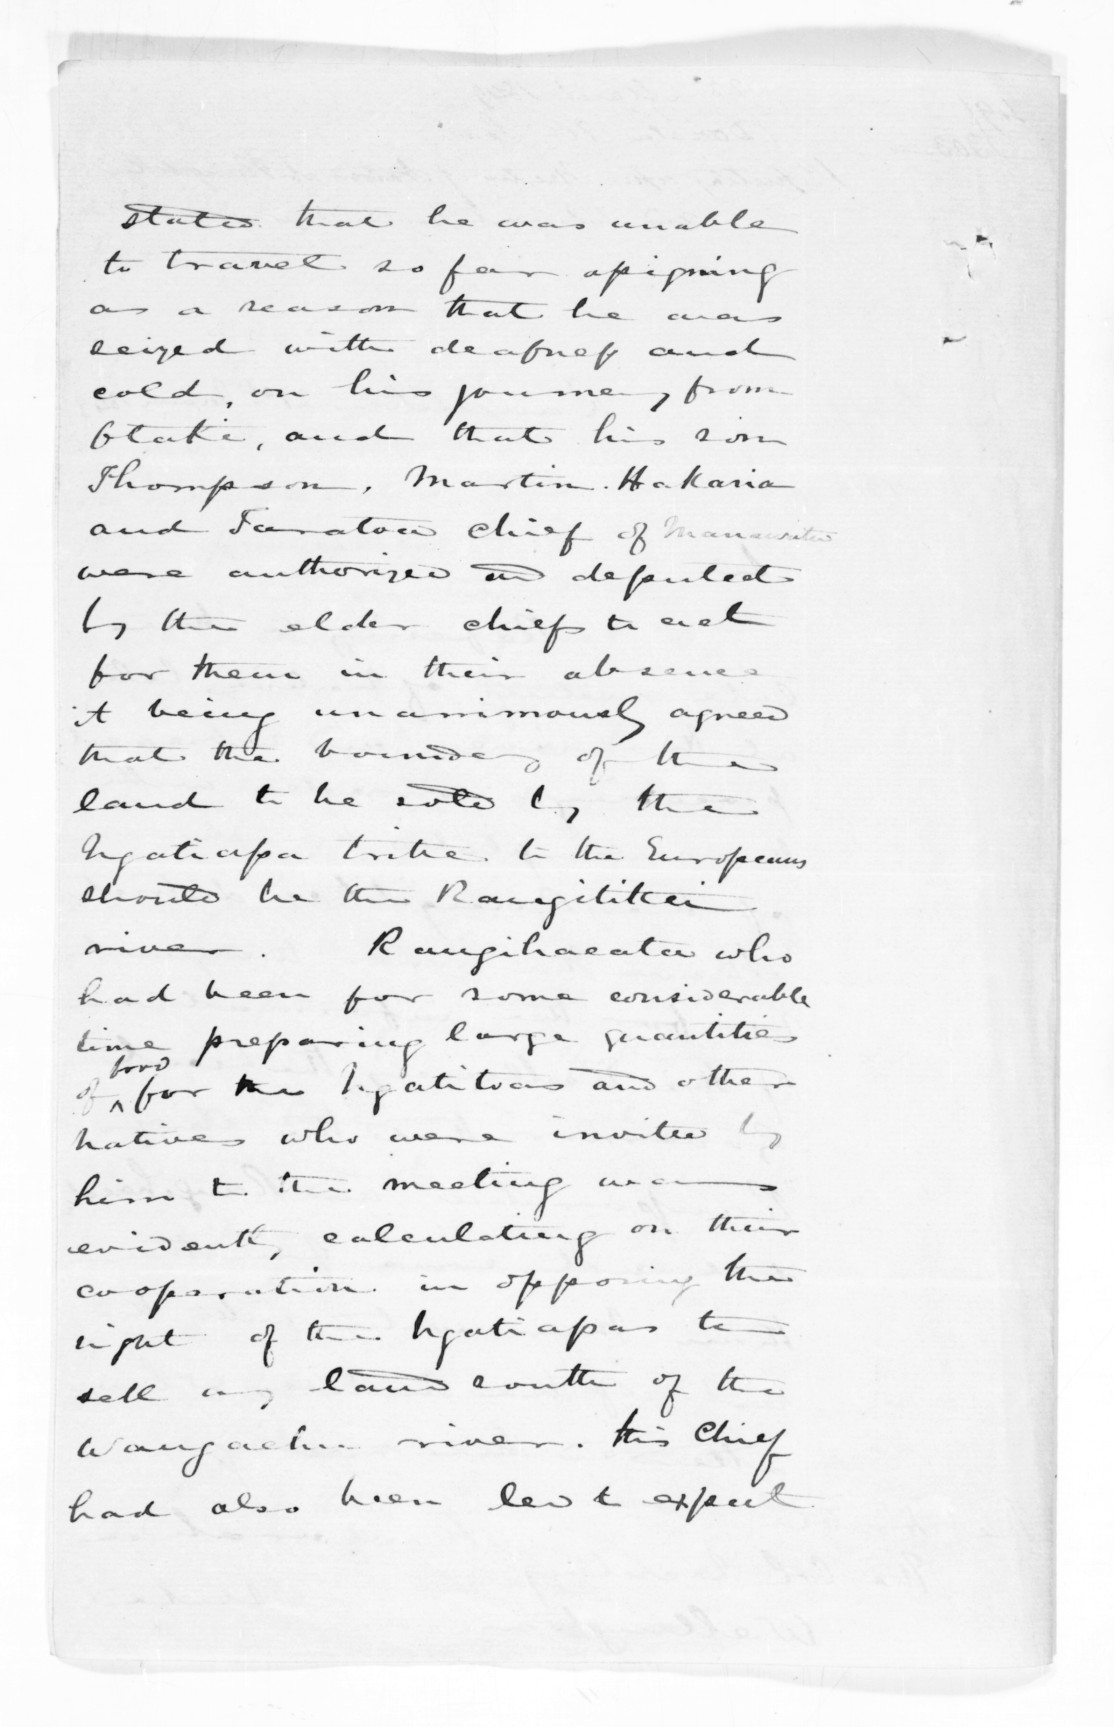 stated that he was unable
to travel so far assigning
as a reason that he was
seized with deafness and
cold, on his journey from
Otaki, and that his son
Thompson, Martin. Hakaria
and Taratoa chief of Manawatu
were authorized and deputed
by the elder chiefs to act
for them in their absence
it being unanimously agreed
that the boundary of the
land to be sold by the
Ngatiapa tribe to the Europeans
should be the Rangitikei
river. Rangihaeata who
had been for some considerable
time preparing large quantities
of food for the Ngatitoas and other
natives who were invited by
him to the meeting was
evidently calculating on their
cooperation in opposing the
right of the Ngatiapas to
sell any land south of the
Wangaehu river. this Chief
had also been led to expect